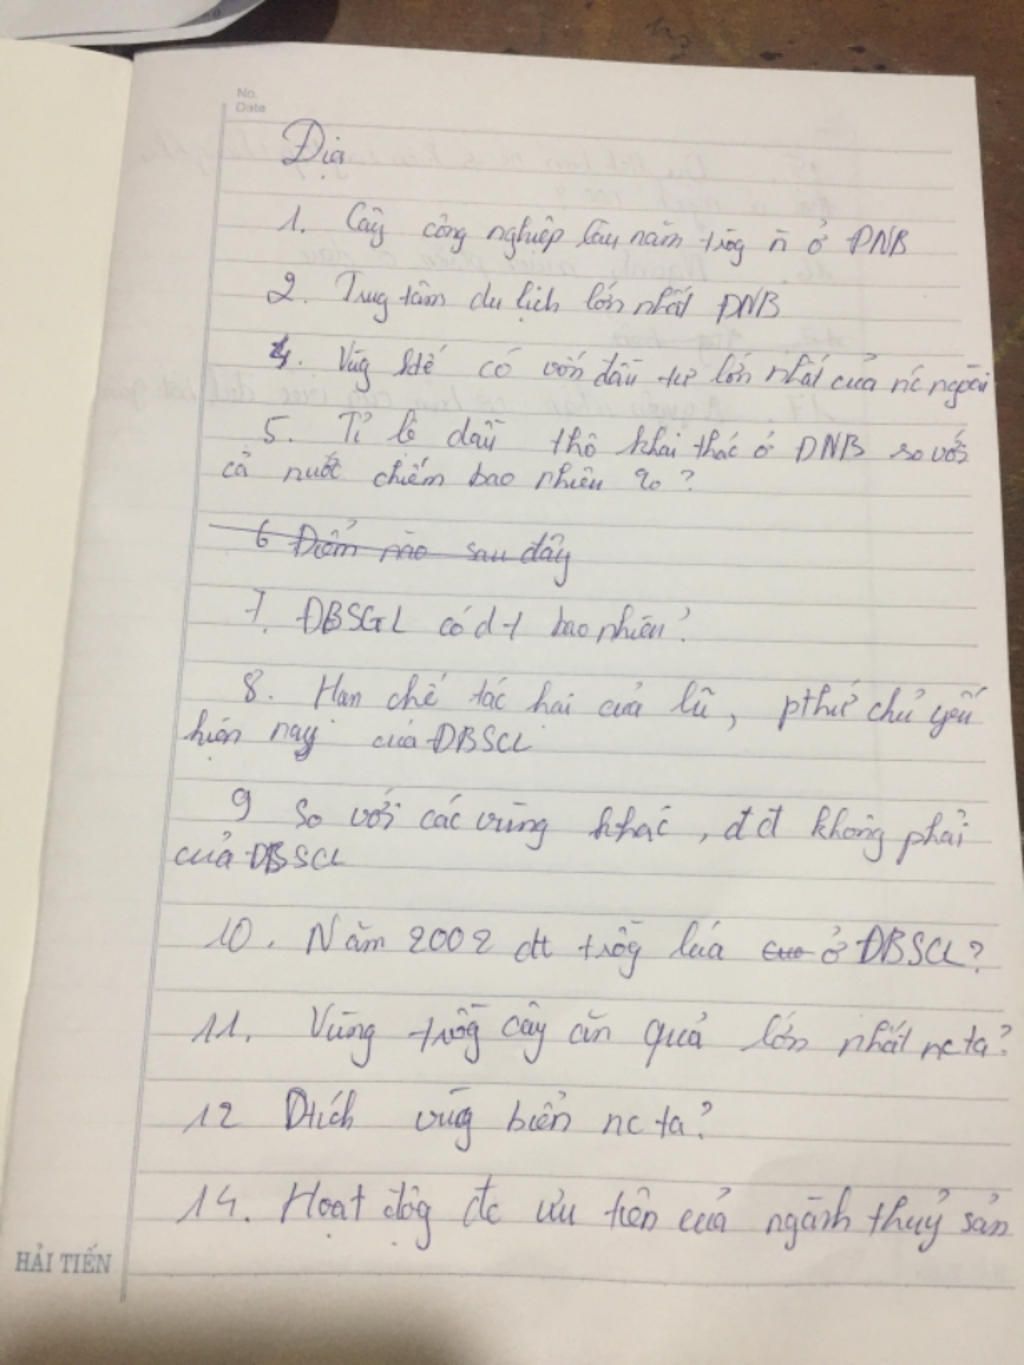 No.
Date
Địa
1. Cây công nghiệp lâu năm trồg n̄ ở ĐNB
2. Trug tâm du lịch lớn nhất ĐNB
4. Vùg ktế có vốn đầu tư lớn nhất của nc ngoài
5. Tỉ lệ dầu thô khai thác ở ĐNB so với
cả nước chiếm bao nhiêu %?
6 Điểm nào sau đây
7. ĐBSCL có d-t bao nhiêu?
8. Hạn chế tác hại của lũ, pthức chủ yếu
hiện nay của ĐBSCL
9 So với các vùng khác, đđ không phải
của ĐBSCL
10. Năm 2002 dt trồg lúa ở ĐBSCL?
11. Vùng trồg cây ăn quả lớn nhất nc ta?
12 Dtích vùg biển nc ta?
14. Hoạt độg đc ưu tiên của ngành thuỷ sản
HẢI TIẾN